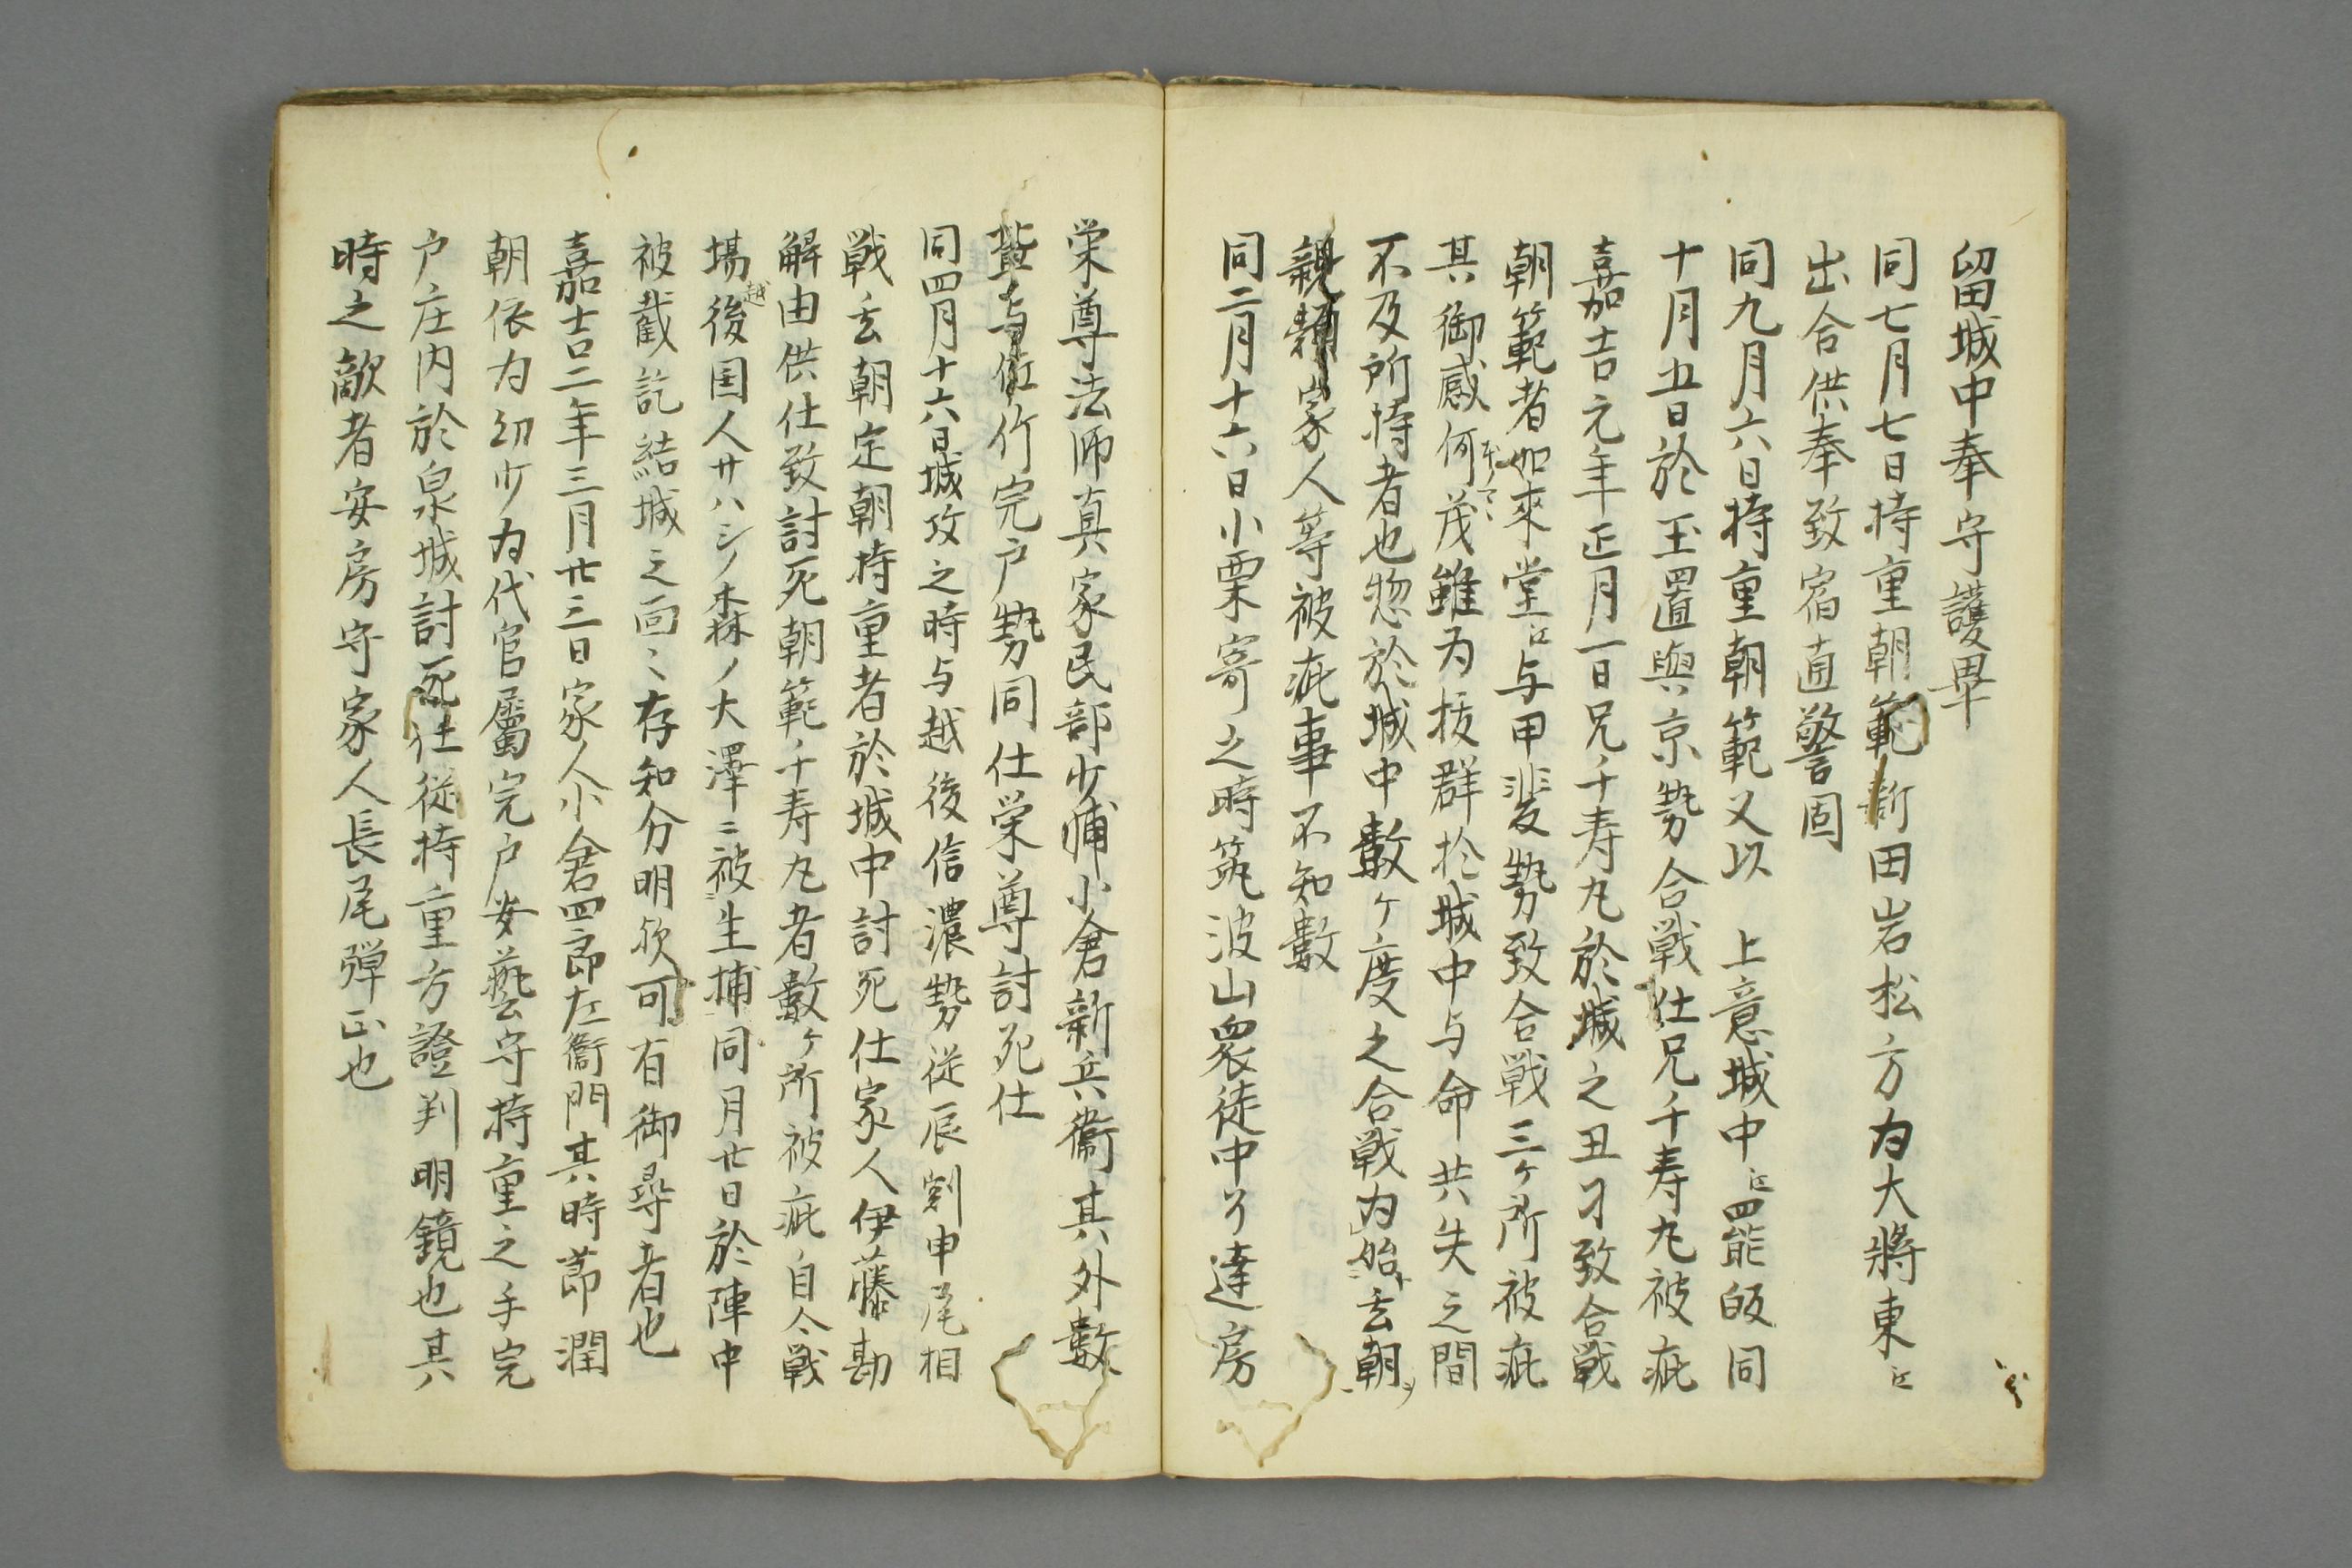 留城中奉守護畢
同七月七日持重朝範新田岩松方为大將東江
出合供奉致宿直警固
同九月六日持重朝範又以　上意城中江罷皈同
十月五日於玉置與京勢合戦仕兄千寿丸被疵
嘉吉元年正月一日兄千寿丸於城之丑刁致合戦
朝範者如來堂江与甲斐勢致合戦三ケ所被疵
其御感何茂雖为抜群於城中与命共失之間
不及所持者也惣於城中數ケ度之合戦为始玄朝
親類家人等被疵事不知數
同二月十六日小栗寄之時筑波山衆徒中達房
栄尊法师真家民部少輔小倉新兵衞其外數
輩与佐竹宍户勢同仕栄尊討死仕
同四月十六日城攻之時与越後信濃勢従辰剋申尾相
戦玄朝定朝持重者於城中討死仕家人伊藤勘
解由供仕致討死朝範千寿丸者數ケ所被疵自今戦
場越後国人廾ハシノ森ノ大澤ニ被生捕同月廿日於陣中
被截訖結城之面〻存知分明欤可有御尋者也
嘉吉二年三月廿三日家人小倉四郎左衞門其時莭潤
朝依为幼少为代官屬宍户安藝守持重之手宍
户庄内於泉城討死仕従持重方證判明鏡也其
時之敵者安房守家人長尾彈正也